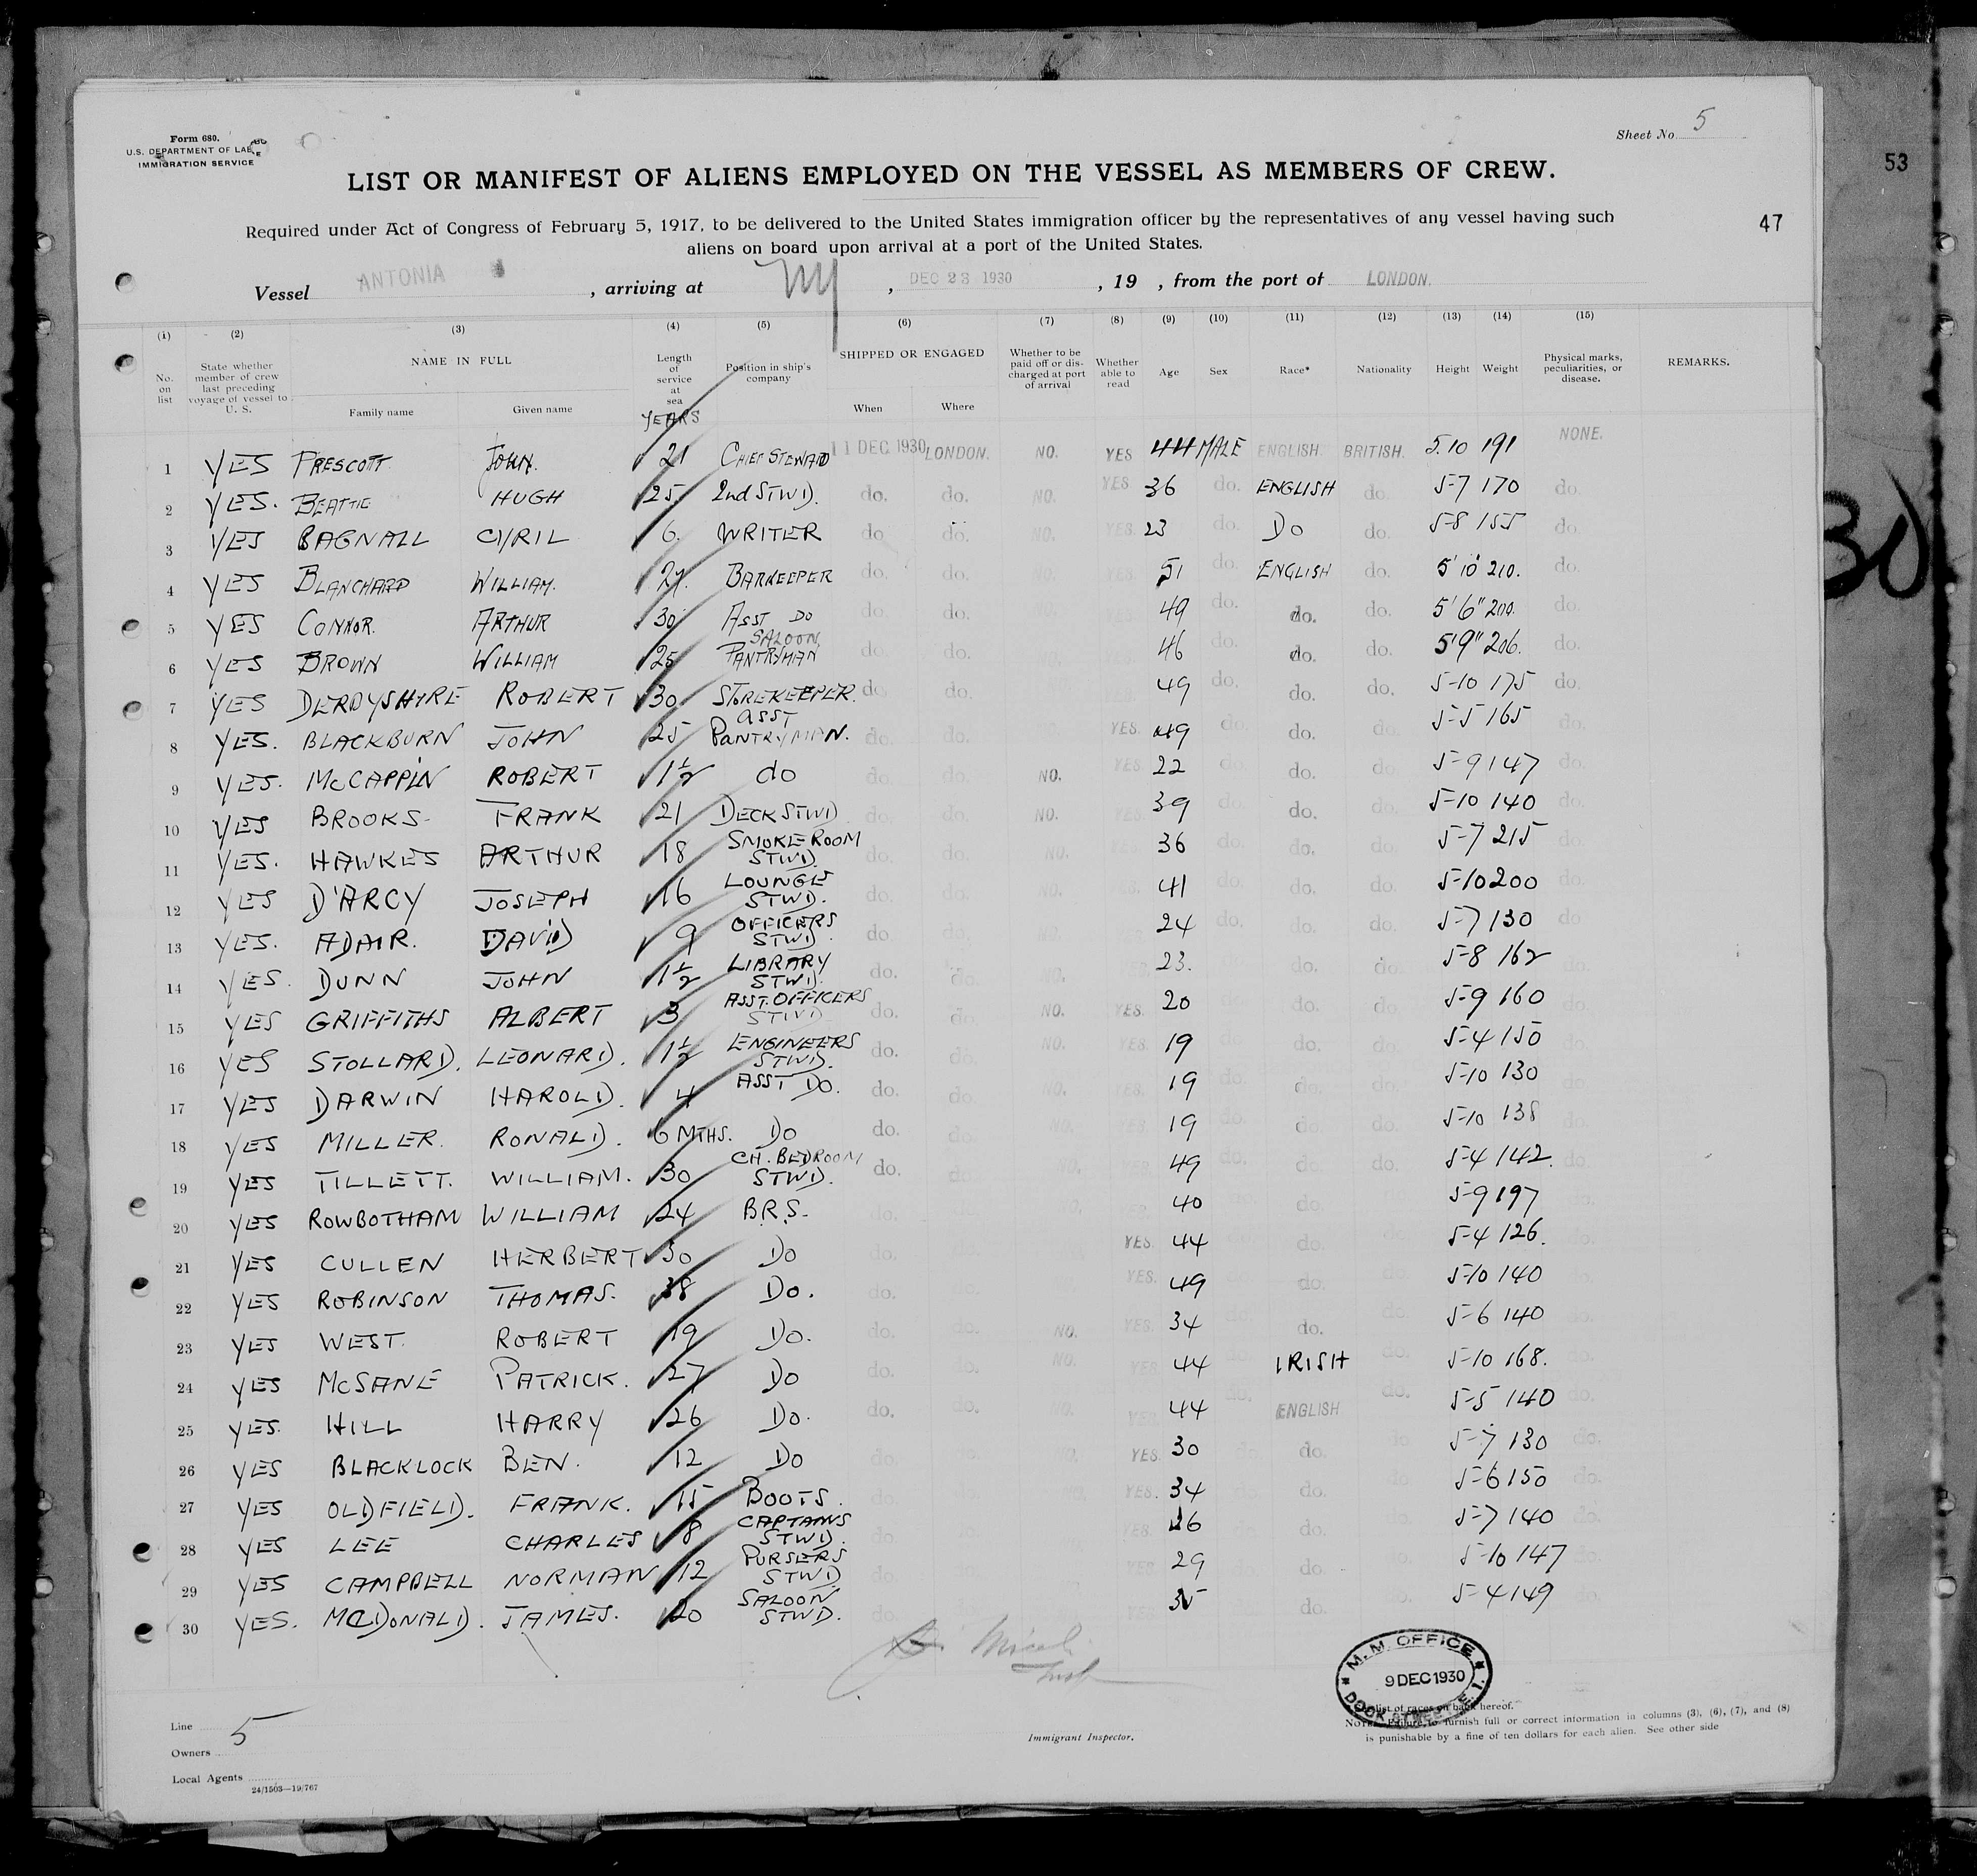 Form 680.
U.S. DEPARTMENT OF LABOR
IMMIGRATION SERVICE
Sheet No. 5
53
LIST OR MANIFEST OF ALIENS EMPLOYED ON THE VESSEL AS MEMBERS OF CREW.
Required under Act of Congress of February 5, 1917, to be delivered to the United States immigration officer by the representatives of any vessel having such
aliens on board upon arrival at a port of the United States.
47
Vessel ANTONIA , arriving at NY , DEC 23 1930 , 19 , from the port of LONDON.
(1) (2) (3) (4) (5) (6) (7) (8) (9) (10) (11) (12) (13) (14) (15)
No. on list State whether member of crew last preceding voyage of vessel to U. S. NAME IN FULL Family name Given name Length of service at sea YEARS Position in ship's company SHIPPED OR ENGAGED When Where Whether to be paid off or discharged at port of arrival Whether able to read Age Sex Race* Nationality Height Weight Physical marks, peculiarities, or disease. REMARKS.
1 YES PRESCOTT JOHN. 21 CHIEF STEWARD 11 DEC 1930 LONDON. NO. YES 44 MALE ENGLISH BRITISH. 5.10 191 NONE.
2 YES. BEATTIE HUGH 25 2nd STWD. do. do. NO. YES 36 do. ENGLISH do. 5-7 170 do.
3 YES BAGNALL CYRIL 6. WRITER do do. NO. YES. 23 do. DO do. 5-8 155 do.
4 YES BLANCHARD WILLIAM. 27. BARKEEPER do. do. NO. YES. 51 do. ENGLISH do. 5'10 210. do.
5 YES CONNOR. ARTHUR 30 ASST DO do. do. NO. YES. 49 do. do. do. 5'6" 200. do.
6 YES BROWN WILLIAM 25 SALOON PANTRYMAN do. do. NO. YES. 46 do. do. do. 5'9" 206. do.
7 YES DERBYSHIRE ROBERT 30 STOREKEEPER. do do. NO. YES. 49 do. do. do. 5-10 175 do.
8 YES. BLACKBURN JOHN 25 ASST PANTRYMAN. do. do. YES. 49 do. do. do. 5-5 165 do.
9 YES. McCAPPIN ROBERT 1½ do do. do. NO. YES 22 do. do. do. 5-9 147 do.
10 YES BROOKS FRANK 21 DECK STWD do. do. NO. YES. 39 do. do. do. 5-10 140 do.
11 YES. HAWKES ARTHUR 18 SMOKE ROOM STWD. do. do. NO. 36 do. do. do. 5-7 215 do.
12 YES D'ARCY JOSEPH 16 LOUNGE STWD. do. do. NO. YES. 41 do. do. do. 5-10 200 do.
13 YES. ADAIR. DAVID 9 OFFICERS STWD. do do. NO. 24 do. do. do. 5-7 130 do.
14 YES. DUNN JOHN 1½ LIBRARY STWD. do. do. NO. YES. 23. do. do. 5-8 162 do.
15 YES GRIFFITHS ALBERT 3 ASST. OFFICERS STWD do. do. NO. YES. 20 do. do. do. 5-9 160 do.
16 YES STOLLARD. LEONARD. 1½ ENGINEERS STWD. do. do. NO. YES. 19 do. do. do. 5-4 150 do.
17 YES DARWIN HAROLD. 4 ASST DO. do. do. NO. YES. 19 do. do. do. 5-10 130 do.
18 YES MILLER. RONALD. 6 MTHS. DO do. do. NO. YES. 19 do. do. do. 5-10 138 do.
19 YES TILLETT. WILLIAM. 30 CH. BEDROOM STWD. do. do. NO. YES. 49 do. do do. 5-4 142. do
20 YES ROWBOTHAM WILLIAM 24 B.R.S. do. do. NO. YES. 40 do. do. 5-9 197
21 YES CULLEN HERBERT 30 DO do. do. YES. 44 do. 5-4 126.
22 YES ROBINSON THOMAS. 38 DO. do. do. YES. 49 do. 5-10 140
23 YES WEST. ROBERT 19 DO. do. do. NO. YES. 34 do. do. 5-6 140 do.
24 YES McSANE PATRICK. 27 DO do. do. NO. YES 44 do. IRISH do. 5-10 168. do.
25 YES. HILL HARRY 26 DO. do. do. NO. YES. 44 do. ENGLISH do. 5-5 140 do.
26 YES BLACKLOCK BEN. 12 DO do. do. NO. YES. 30 do. do. do 5-7 130 do.
27 YES OLDFIELD. FRANK. 15 BOOTS. do. do. YES. 34 do. do. 5-6 150 do.
28 YES LEE CHARLES 8 CAPTAINS STWD. do YES. 26 do. 5-7 140
29 YES CAMPBELL NORMAN 12 PURSERS STWD do. YES 29 do. 5-10 147
30 YES. McDONALD. JAMES. 20 SALOON STWD. do. YES 35 do. 5-4 149
M. M. OFFICE
9 DEC 1930
DOCK STREET E. 1.
list of races on back hereof.
NOTE Failure to furnish full or correct information in columns (3), (6), (7), and (8)
is punishable by a fine of ten dollars for each alien. See other side
Line
5
Owners
Immigrant Inspector.
Local Agents
24/1503—19/767